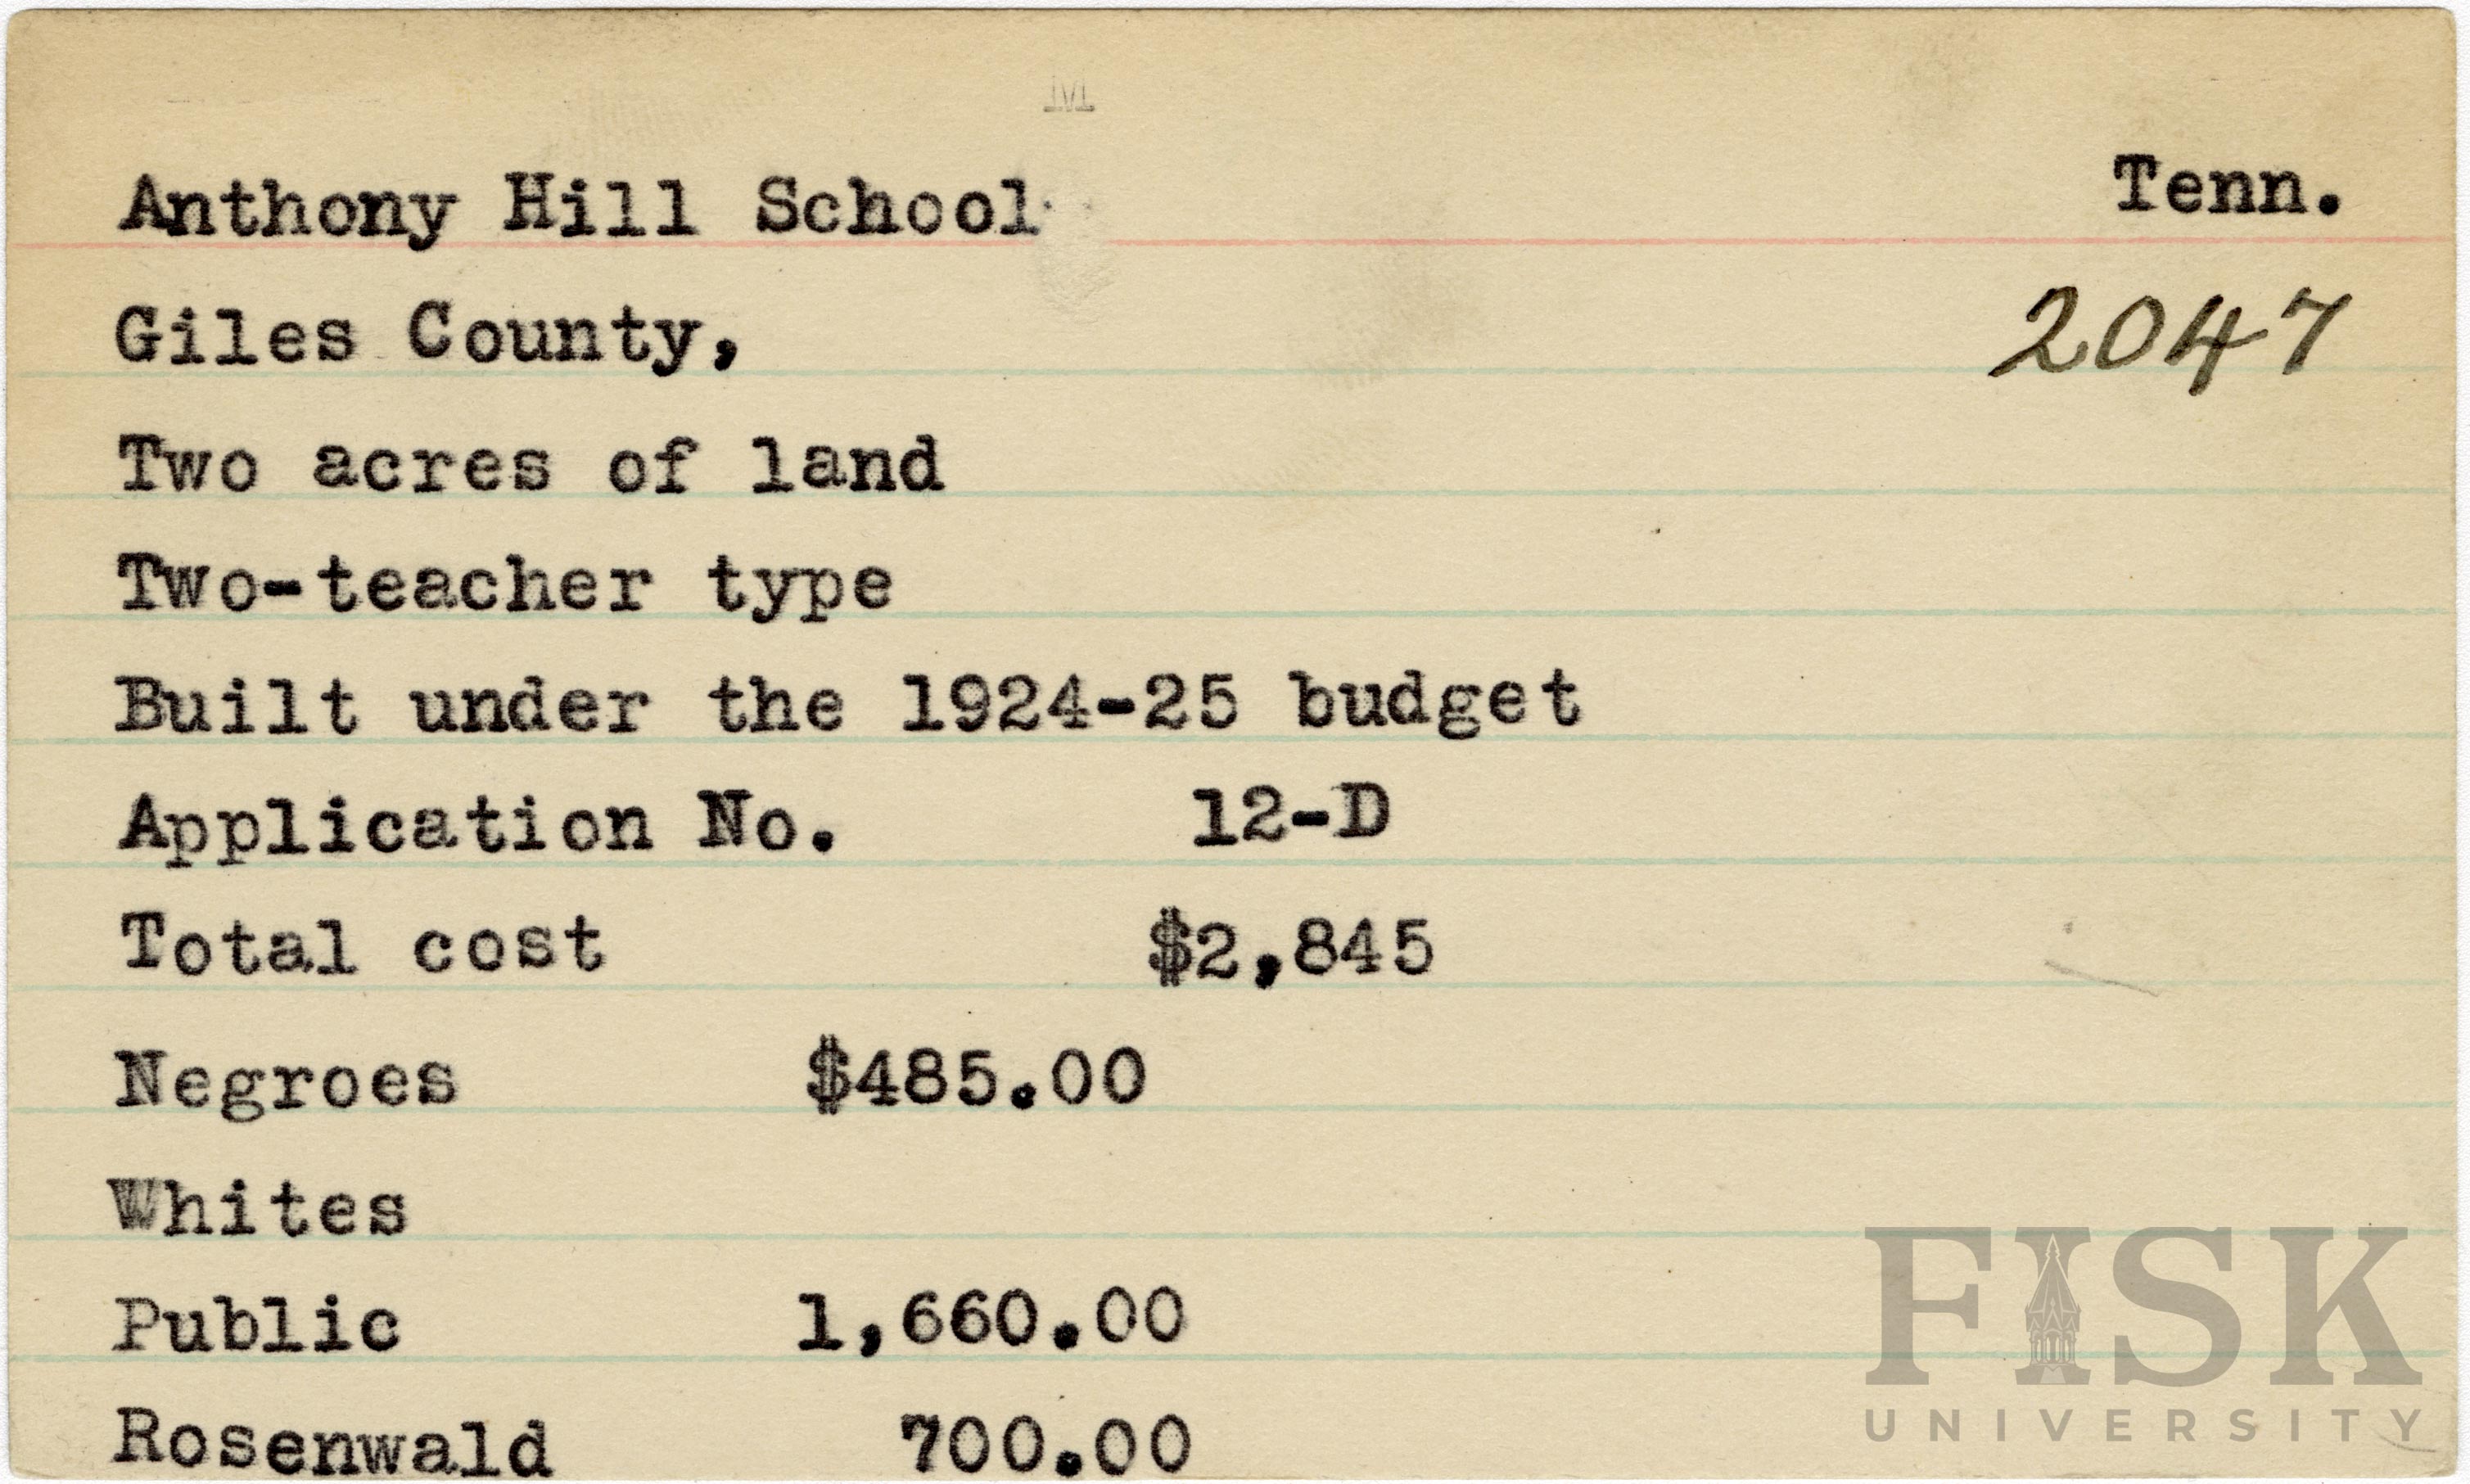 Anthony Hill School Tenn.
Giles County, 2047
Two acres of land
Two-teacher type
Built under the 1924-25 budget
Application No. 12-D
Total cost $2,845
Negroes $485.00
Whites
Public 1,660.00
Rosenwald 700.00
FISK
UNIVERSITY